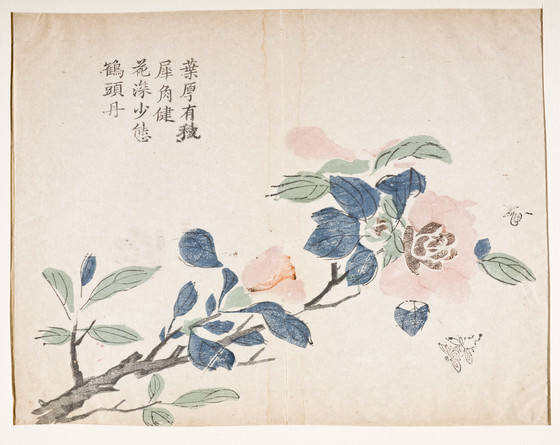 葉厚有
犀角健
花深少態
鶴頭丹